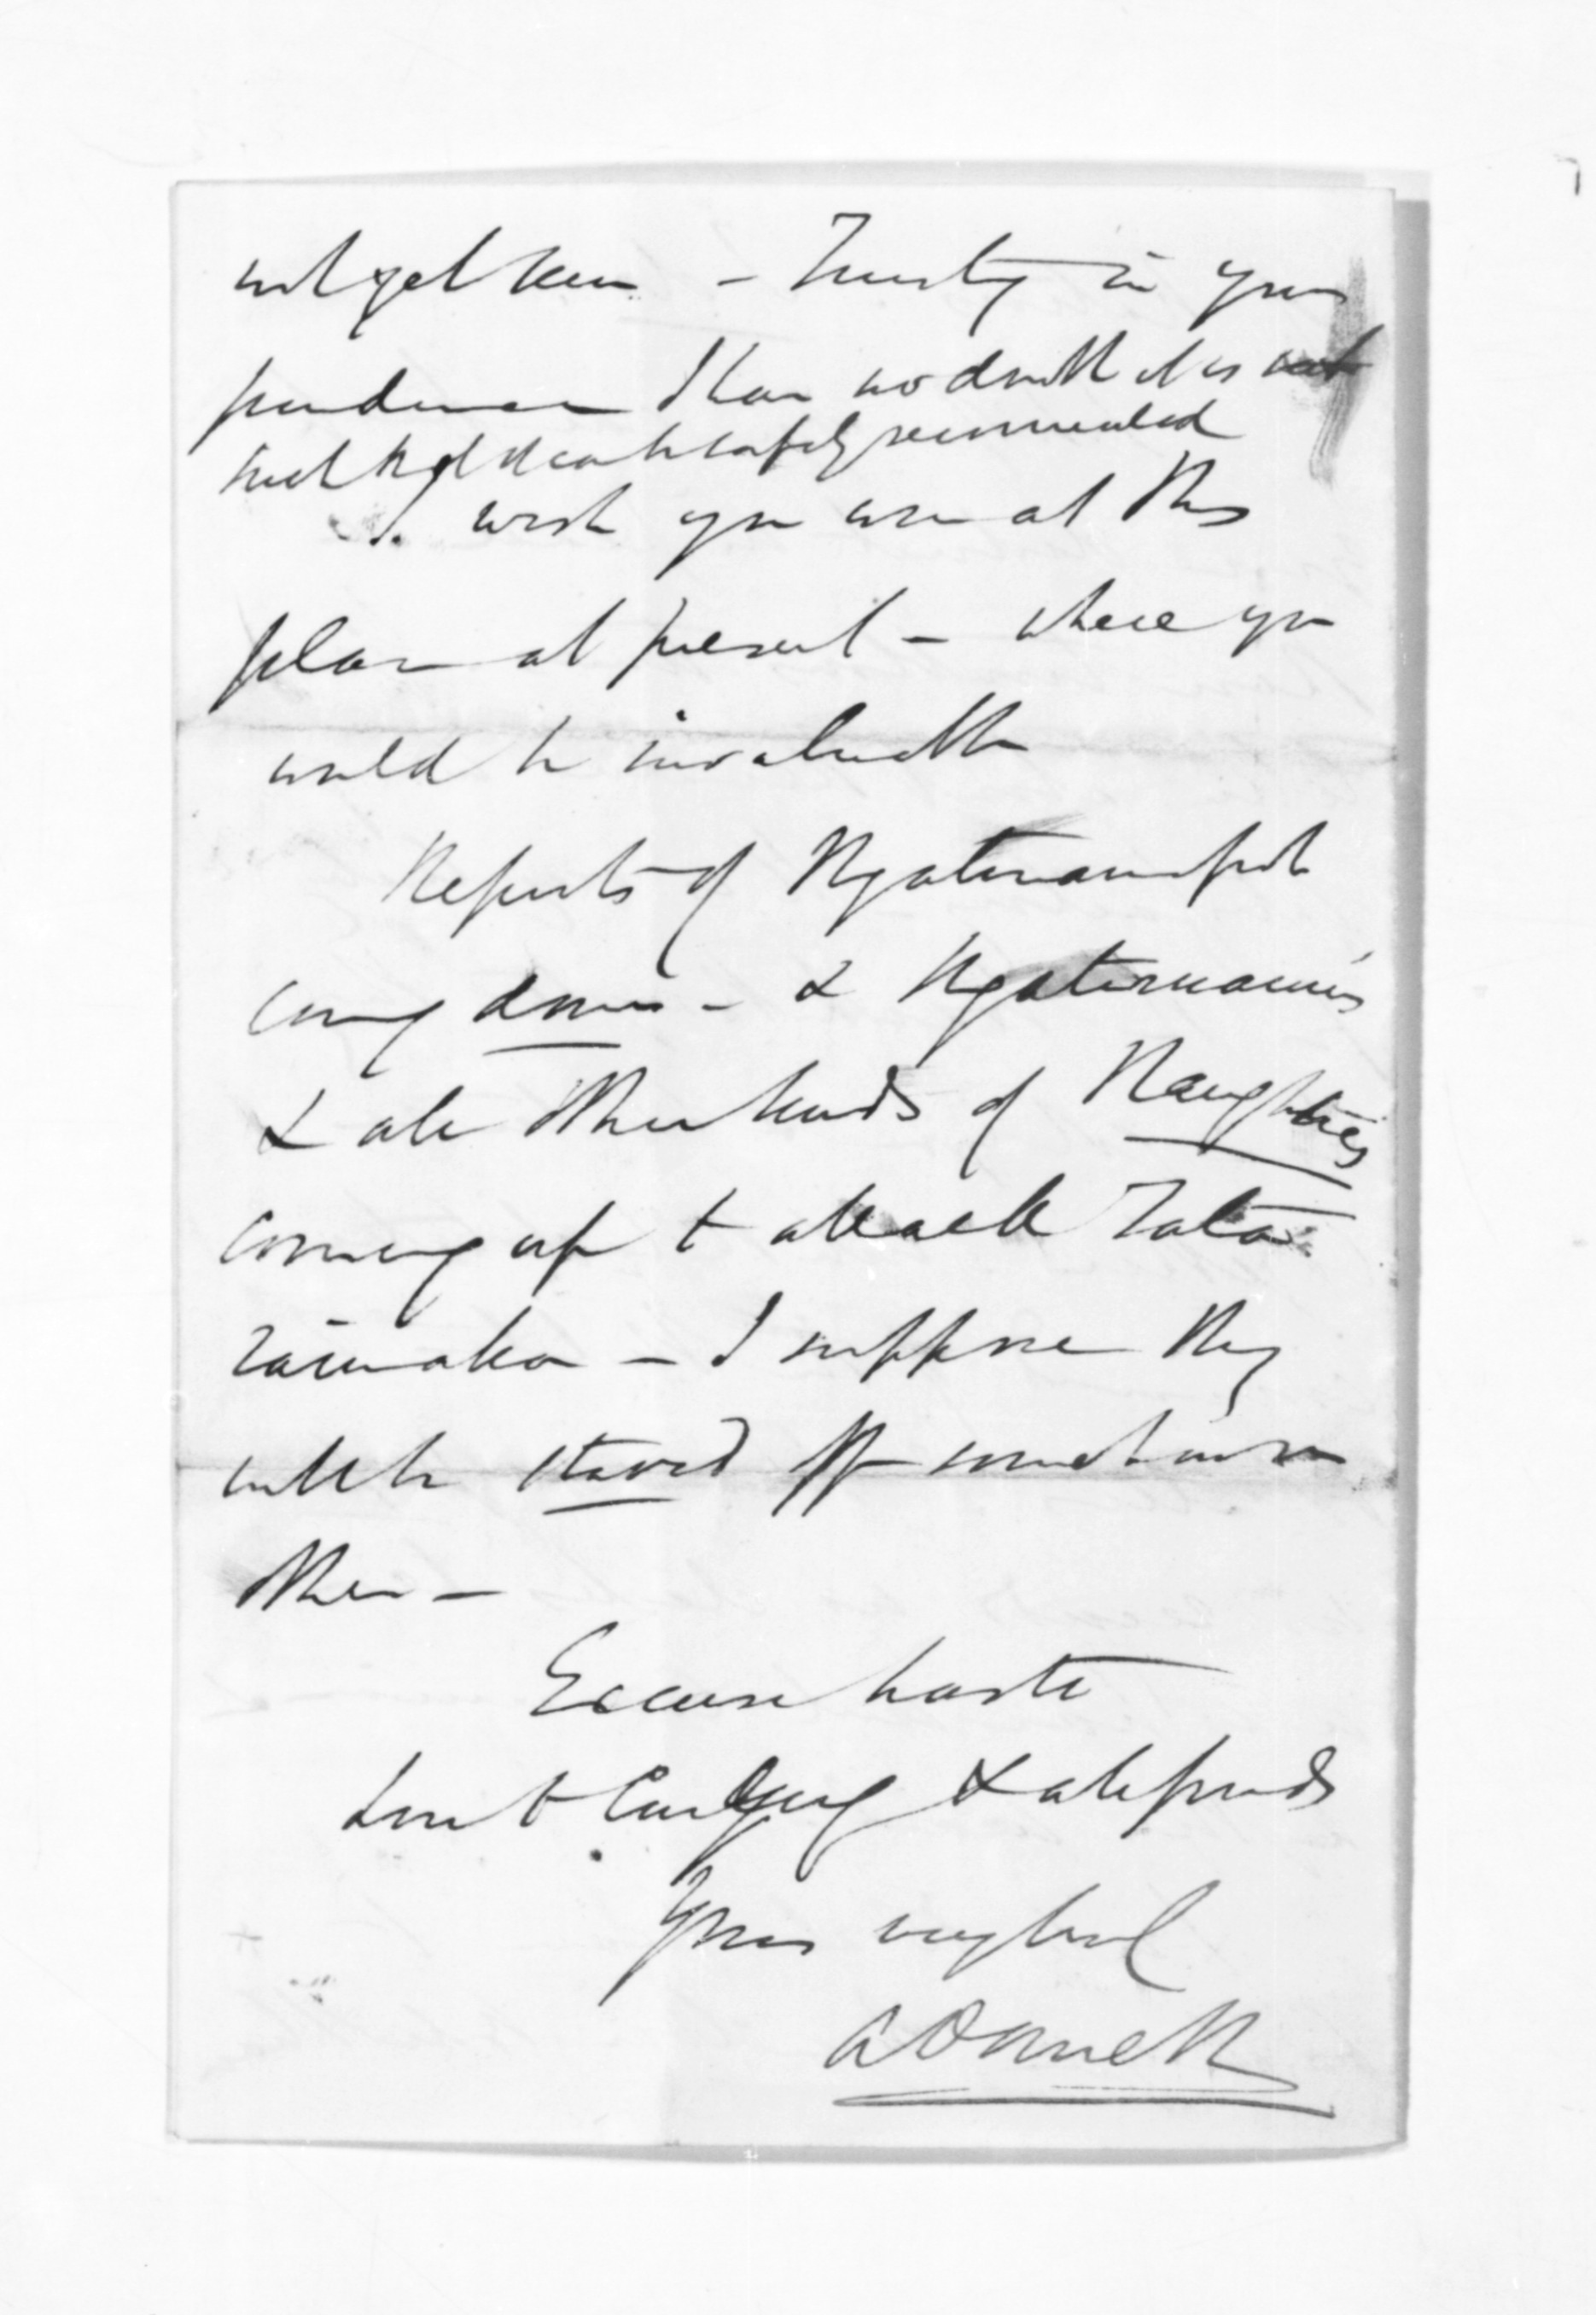 not yet been - Trusting in your
prudence I have no doubt it is not
such that it can be safely recommended
I wish you were at this
place at present - where you
would be invaluable
Reports of Ngatiruanui
coming down - & Ngatimaru's
& all other kinds of Naughties
coming up to attack Tata
raimaka - I suppose they
will be staved off somehow or
other -
Excuse haste
Love to & all friends
Yours very truly